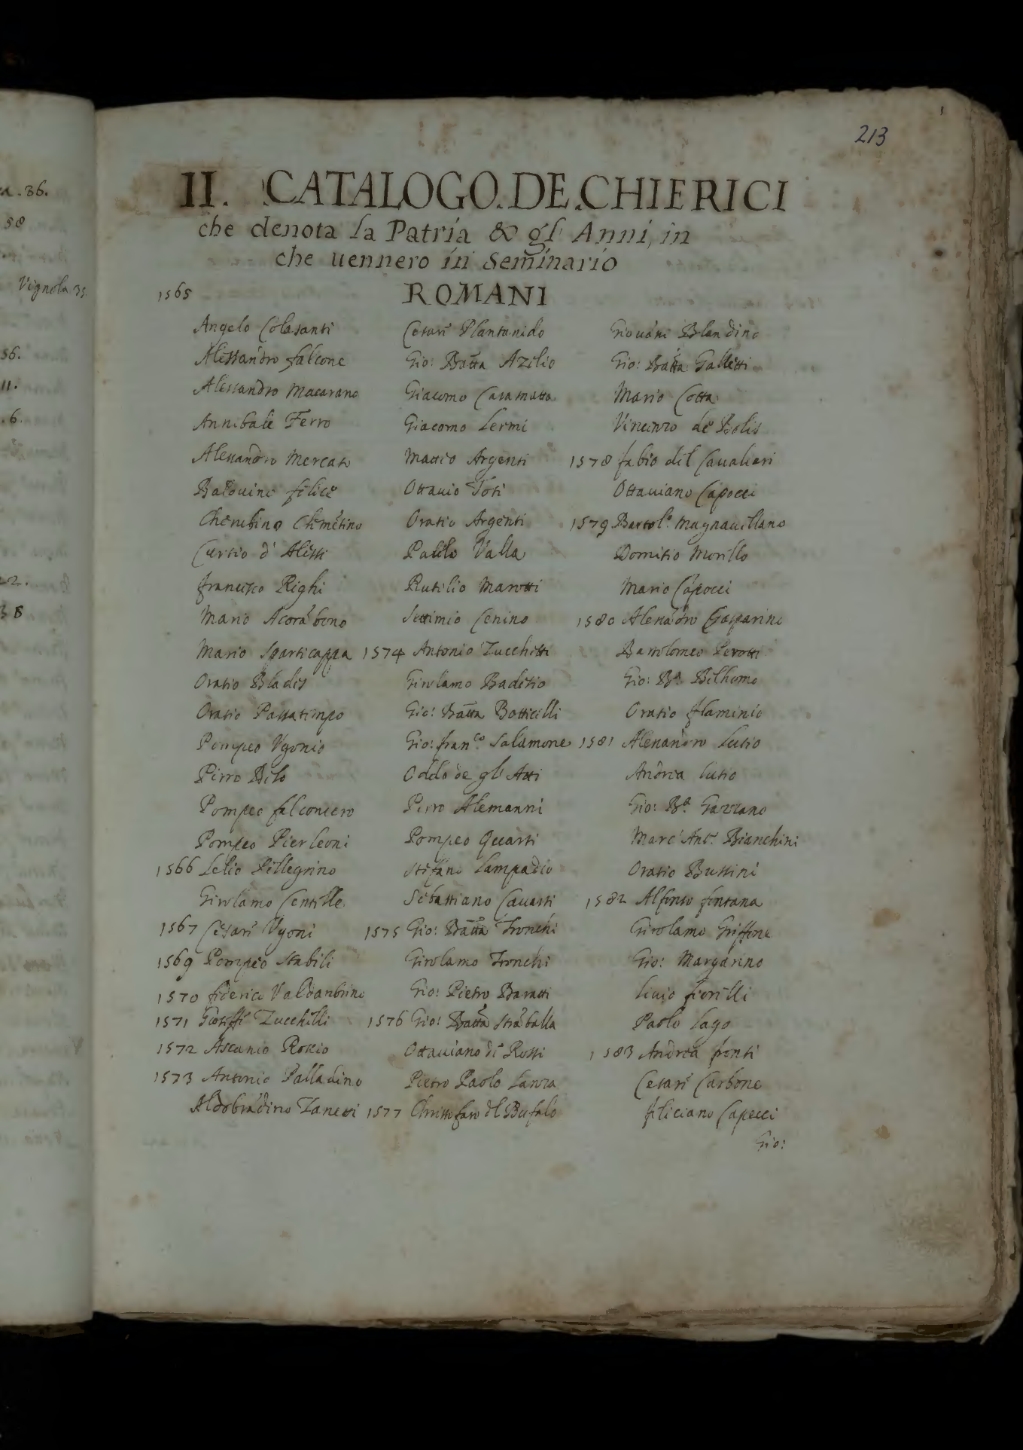 213
II. CATALOGO.DE.CHIERICI
che denota la Patria & gl' Anni, in
che uennero in Seminario
1565
ROMANI
Angelo Colasanti
Alessandro falcone
Alessandro Macarano
Annibale Ferro
Alessandro Mercato
Baldouino felice
Cherubino Clemétino
Curtio d' Alisti
francesco Righi
Mario Acorábono
Mario Sparticappa
Oratio Bladis
Oratio Passatimpo
Pompeo Vgonio
Pirro Bilo
Pompeo falconcero
Pompeo Pierleoni
1566 Lelio Pellegrino
Girolamo Centille
1567 Cesari Vgoni
1569 Pompeo Stabili
1570 federico Valdambrino
1571 Zucchilli
1572 Ascanio Roscio
1573 Antonio Palladino
Aldobrádino Zanetti
Cesari Plantanido
Gio: Batta Azilio
Giacomo Casamatta
Giacomo Lermi
Matteo Argenti
Ottauio Toti
Oratio Argenti
Paulo Valla
Rutilio Marotti
Settimio Cenino
1574 Antonio Zucchetti
Girolamo Badesio
Gio: Batta Botticilli
Gio: franco Salamone
Oddo de gl' Atti
Pirro Alemanni
Pompeo Quarti
Stefano Lampadio
Sebastiano Cauarti
1575 Gio: Batta Tronchi
Girolamo Tronchi
Gio: Pietro Baratti
1576 Gio: Batta Stráballa
Ottauiano di Rossi
Pietro Paolo Lanza
1577 Christofaro del Bufalo
Giouáni Blandino
Gio: Batta Galletti
Mario Cotta
Vincenzo de Bolis
1578 fabio del Caualiari
Ottauiano Capocci
1579 Bartol.o Magnauillano
Domitio Morillo
Mario Capocci
1580 Alexádro Gasparino
Bartolomeo Perotti
Gio: Ba Bilhomo
Oratio flaminio
1581 Alexandro Lutio
Andrea Lutio
Gio: Ba Gazzano
Marc' Ant.o Bianchini
Oratio Bussini
1582 Alfonso fontana
Girolamo Griffone
Gio: Margarino
Liuio fiorilli
Paolo Lago
1583 Andrea fonti
Cesari Carbone
feliciano Capocci
Gio:
a. 36.
58
Vignola 35
36.
11.
.6.
22.
38